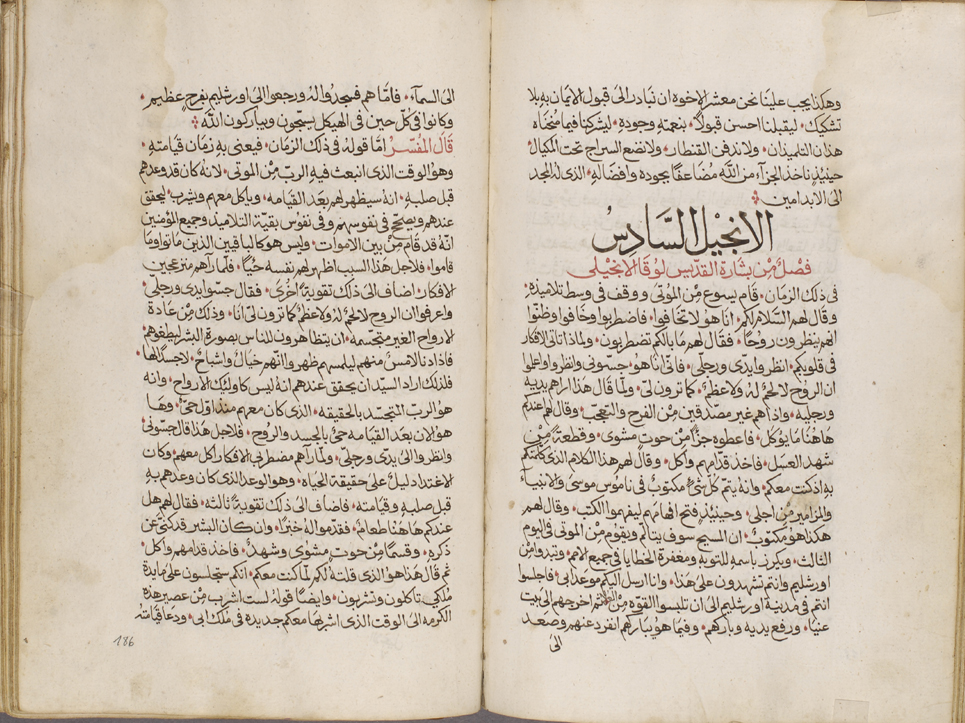 وهكذا يجب علينا نحن معشر الاخوه ان نبادر الى قبول الايمان به بلا
تشكيك. ليقبلنا احسن قبولٍ. بنعمته وجوده. ليشركنا فيما منحاه
هذان التلميذان. ولا ندفن القنطار. ولا نضع السراج تحت المكيال.
حينيذٍ ناخذ الجزآء من الله مضاعفًا بجوده وافضاله. الذى له المجد
الى الابد امين
الانجيل السادس
فصلٌ من بشارة القديس لوقا الانجيلى
فى ذلك الزمان. قام يسوع من الموتى ووقف فى وسط تلاميذه.
وقال لهم السلام لكم. انا هو لا تخافوا. فاضطربوا وخافوا وظنوا
انهم ينظرون روحًا. فقال لهم ما بالكم تضطربون. ولماذا تاتى الافكار
فى قلوبكم. انظروا يدى ورجلى. فانى انا هو. جسونى وانظروا واعلموا
ان الروح لا لحم له ولا عظم. كما ترون لى. ولما قال هذا اراهم يديه
ورجليه. واذ هم غير مصدقين من الفرح والتعجب. وقال لهم عندكم
هاهنا ما يوكل. فاعطوه جزًا من حوت مشوى. وقطعة من
شهد العسل. فاخذ قدامهم واكل. وقال لهم هذا الكلام الذى كلمتكم
به اذ كنت معكم. وانه يتم كل شئ مكتوبٌ فى ناموس موسى والانبيآء
والمزامير من اجلى. وحينيذٍ فتح افهامهم ليفهموا الكتب. وقال لهم
هكذا هو مكتوبٌ. ان المسيح سوف يتالم ويقوم من الموتى فى اليوم
الثالث. ويكرز باسمه للتوبه ومغفرة الخطايا فى جميع الامم. وتبدوا من
اورشليم وانتم تشهدون على هذا. وانا ارسل اليكم موعد ابى. فاجلسوا
انتم فى مدينة اورشليم الى ان تلبسوا القوة من العلا ثم اخرجهم الى بيت
عنيا. ورفع يديه وباركهم. وفيما هو يباركهم انفرد عنهم وصعد
الى
الى السمآء. فاما هم فسجدوا له ورجعوا الى اورشليم بفرح عظيم.
وكانوا فى كل حين فى الهيكل يسبحون ويباركون الله
قال المفسر اما قوله فى ذلك الزمان. فيعنى به زمان قيامته.
وهو الوقت الذى انبعث فيه الرب من الموتى. لانه كان قد وعدهم
قبل صلبه. انه سيظهر لهم بعد القيامه. وياكل معهم ويشرب. ليحقق
عندهم ويصحح فى نفوسهم وفى نفوس بقية التلاميذ وجميع المؤمنين
انه قد قام من بين الاموات. وليس هو كالباقيين الذين ماتوا وما
قاموا. فلاجل هذا السبب اظهر لهم نفسه حيًا. فلما رآهم منزعجين
الافكار. اضاف الى ذلك تقوية اخرى. فقال جسوا يدى ورجلى.
واعرفوا ان الروح لا لحم له ولا عظم كما ترون لى انا. وذلك من عادة
الارواح الغير متجسمه. ان يتظاهرون للناس بصورة البشر ليطغوهم.
فاذا دنا لانس منهم ليلمسهم ظهروا انهم خيال واشباح. لا جسد لها.
فلذلك اراد السيد ان يحقق عندهم انه ليس كاوليك الارواح. وانه
هو الرب المتجسد بالحقيقه. الذى كان معهم منذ اول حين. وها
هو الان بعد القيامه حى بالجسد والروح. فلاجل هذا قال جسونى
وانظروا الى يدى ورجلى. ولما رآهم مضطربى الافكار اكل معهم. وكان
الاغتدا دليل على حقيقة الحياه. وهو الوعد الذى كان وعدهم به
قبل صلبه وقيامته. فاضاف الى ذلك تقوية ثالثه. فقال لهم هل
عندكم هاهنا طعامٌ. فقدموا له خبزًا. وان كان البشير قد كنى عن
ذكره. وقسمًا من حوت مشوى وشهد. فاخذ قدامهم واكل.
ثم قال هذا هو الذى قلته لكم لما كنت معكم. انكم ستجلسون على مايدة
ملكى. تاكلون وتشربون. وايضًا قوله لست اشرب من عصير هذه
الكرمه الى الوقت الذى اشربها معكم جديده فى ملك ابى. ودعا قيامته
186